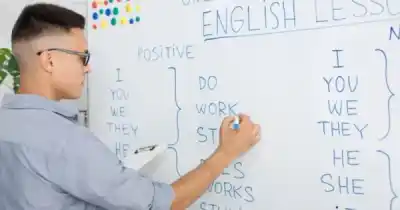 ENGLISH LESSO
POSITIVE
I
YOU
WE
THEY
HE
DO
WORK
ST
WORKS
N
I
YOU
WE
THEY
HE
SHE